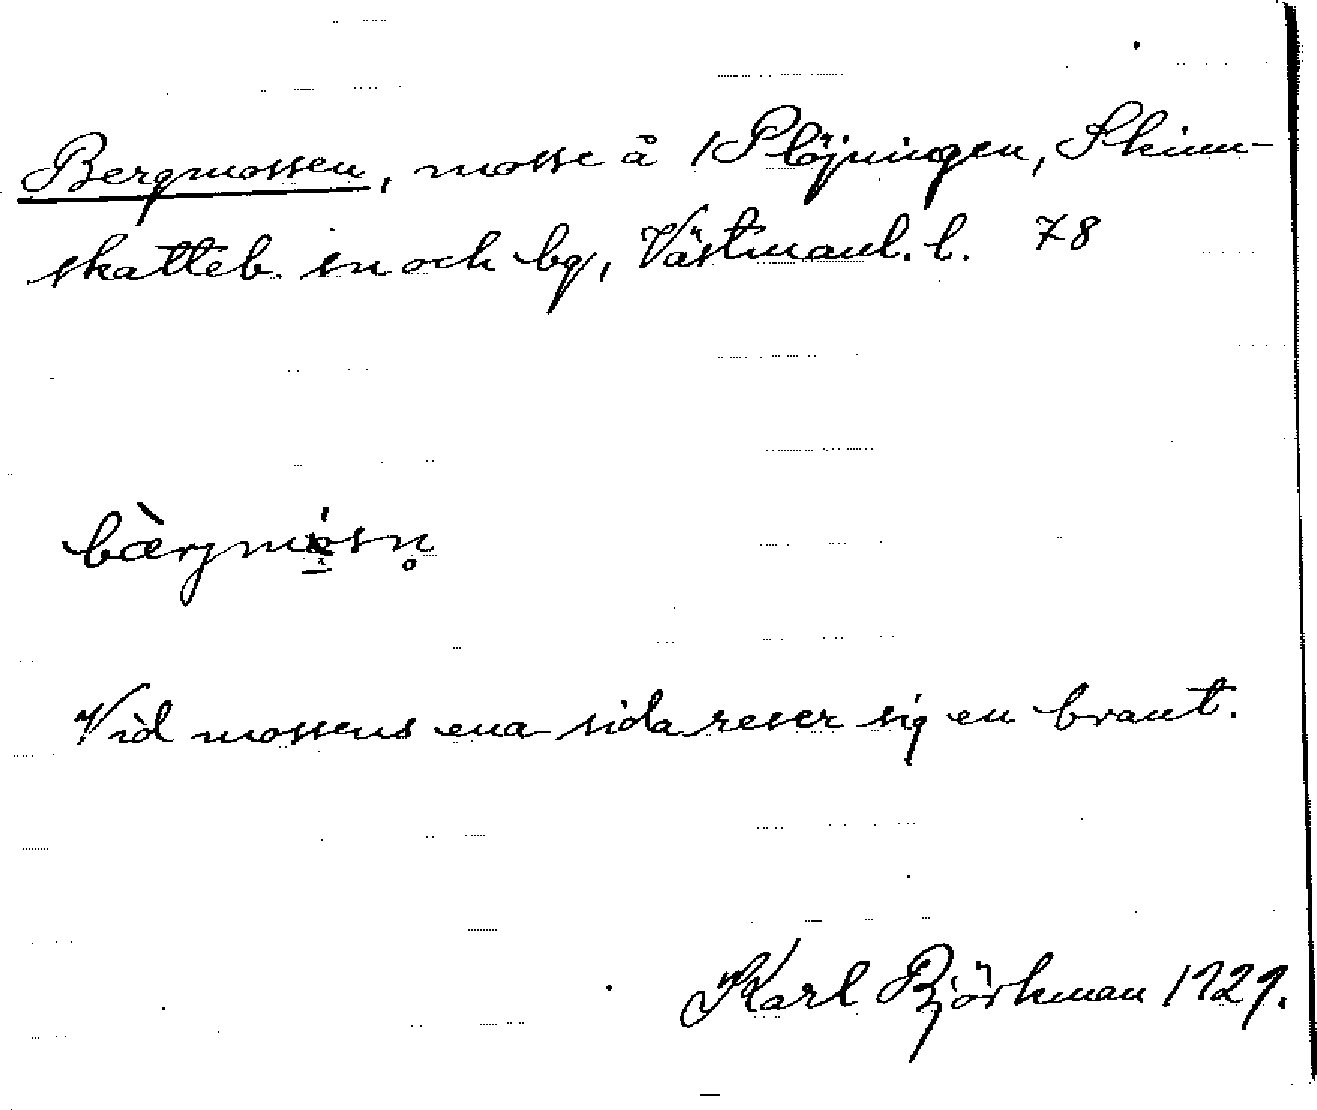 Bergmossen, mosse å /Plöjningen, Skinn-
skatteb. sn och bg, Västmanl. l. 78
bærjmósn̥
Vid mossens ena sida reser sig en brant.
Karl Björkman 1929.